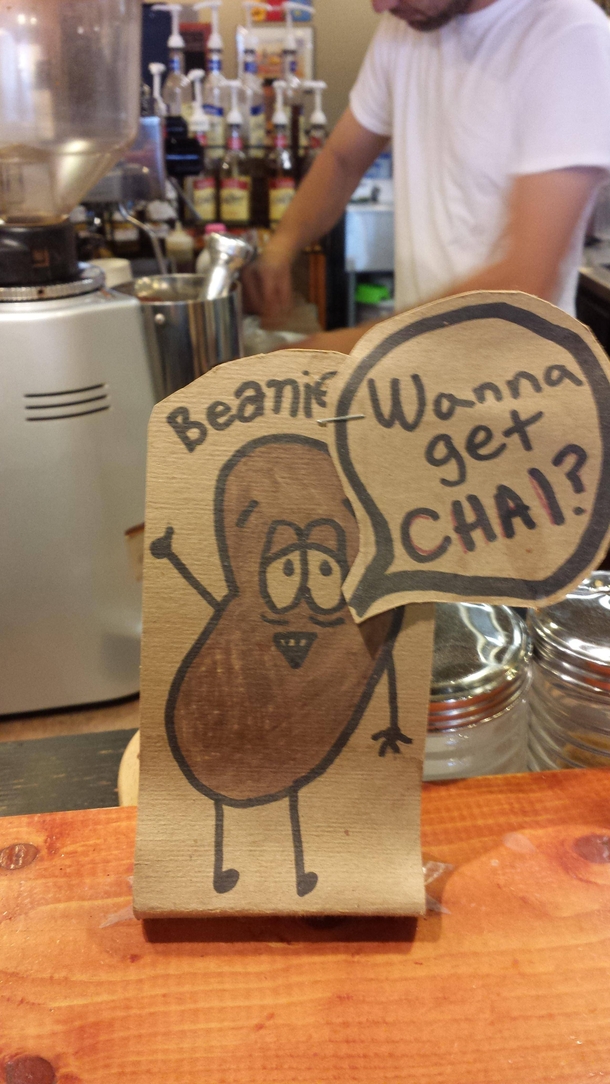 Beanie
Wanna
get
CHAI?